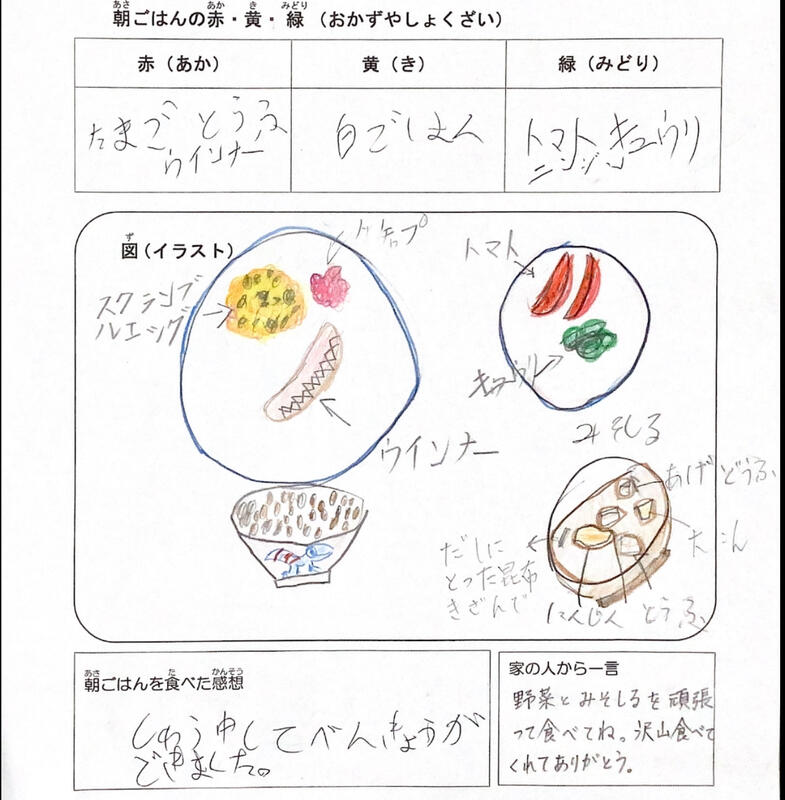 朝ごはんの赤・黄・緑(おかずやしょくざい)
赤(あか)
黄(き)
緑(みどり)
たまご とうふ
ウインナー
白ごはん
トマト キュウリ
ニンジン
図(イラスト)
ケチャップ
スクランブ
ルエッグ
ウインナー
トマト
キュウリ
みそしる
あげどうふ
だしに
とった昆布
きざんで
にんじん とうふ
朝ごはんを食べた感想
しゅう中してべんきょうが
できました。
家の人から一言
野菜とみそしるを頑張
って食べてね。沢山食べて
くれてありがとう。